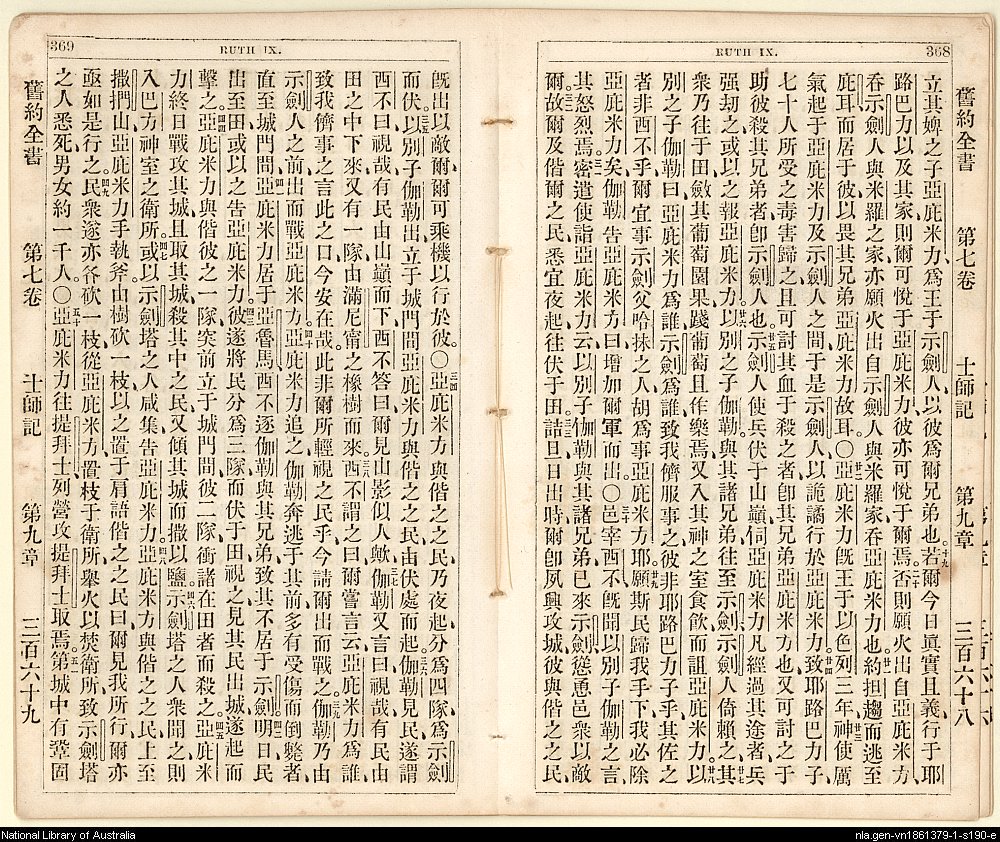 RUTH IX.
368
舊約全書 第七卷 士師記 第九章 三百六十八
立其婢之子亞庇米力為王于示劍人以彼為爾兄弟也十九若爾今日眞實且義行于耶
路巴力以及其家則爾可悅于亞庇米力彼亦可悅于爾焉二十否則願火出自亞庇米力
吞示劍人與米羅之家亦願火出自示劍人與米羅家吞亞庇米力也廿一約担趨而逃至
庇耳而居于彼以畏其兄弟亞庇米力故耳〇廿二亞庇米力旣王于以色列三年廿三神使厲
氣起于亞庇米力及示劍人之間于是示劍人以詭譎行於亞庇米力廿四致耶路巴力子
七十人所受之毒害歸之且可討其血于殺之者卽其兄弟亞庇米力也又可討之于
助彼殺其兄弟者卽示劍人也廿五示劍人使兵伏于山巔伺亞庇米力凡經過其途者兵
强刧之或以之報亞庇米力廿六以別之子伽勒與其諸兄弟往至示劍示劍人倚賴之廿七其
衆乃往于田斂其葡萄園果踐葡萄且作樂焉又入其神之室食飲而詛亞庇米力廿八以
別之子伽勒曰亞庇米力為誰示劍為誰致我儕服事之彼非耶路巴力子乎其佐之
者非西不乎爾宜事示劍父哈抹之人胡為事亞庇米力耶廿九願斯民歸我手下我必除
亞庇米力矣伽勒告亞庇米力曰增加爾軍而出〇三十邑宰西不旣聞以別子伽勒之言
其怒烈焉三一密遣使詣亞庇米力云以別子伽勒與其諸兄弟已來示劍慫恿邑衆以敵
爾三二故爾及偕爾之民悉宜夜起往伏于田三三詰旦日出時爾卽夙興攻城彼及偕之之民
369
RUTH IX.
旣出以敵爾爾可乘機以行於彼〇三四亞庇米力與偕之之民乃夜起分為四隊為示劍
而伏三五以別子伽勒出立于城門間亞庇米力與偕之之民由伏處而起三六伽勒見民遂謂
西不曰視哉有民由山巔而下西不答曰爾見山影似人歟三七伽勒又言曰視哉有民由
田之中下來又有一隊由滿尼甯之橡樹而來三八西不謂之曰爾嘗言云亞庇米力為誰
致我儕事之言此之口今安在哉此非爾所輕視之民乎今請爾出而戰之三九伽勒乃由
示劍人之前出而戰亞庇米力四十亞庇米力追之伽勒奔逃于其前多有受傷而倒斃者
直至城門間四一亞庇米力居于亞魯馬西不逐伽勒與其兄弟致其不居于示劍四二明日民
出至田或以之告亞庇米力四三彼遂將民分為三隊而伏于田視之見其民出城遂起而
擊之四四亞庇米力與偕彼之一隊突前立于城門間彼二隊衝諸在田者而殺之四五亞庇米
力終日戰攻其城且取其城殺其中之民又傾其城而撒以鹽四六示劍塔之人衆聞之則
入巴力神室之衛所四七或以示劍塔之人咸集告亞庇米力四八亞庇米力與偕之之民上至
撒捫山亞庇米力手執斧由樹砍一枝以之置于肩語偕之之民曰爾見我所行爾亦
亟如是行之四九民衆遂亦各砍一枝從亞庇米力置枝于衛所舉火以焚衛所致示劍塔
之人悉死男女約一千人〇五十亞庇米力往提拜士列營攻提拜士取焉五一第城中有鞏固
舊約全書 第七卷 士師記 第九章 三百六十九
National Library of Australia
nla.gen-vn1861379-1-s190-e